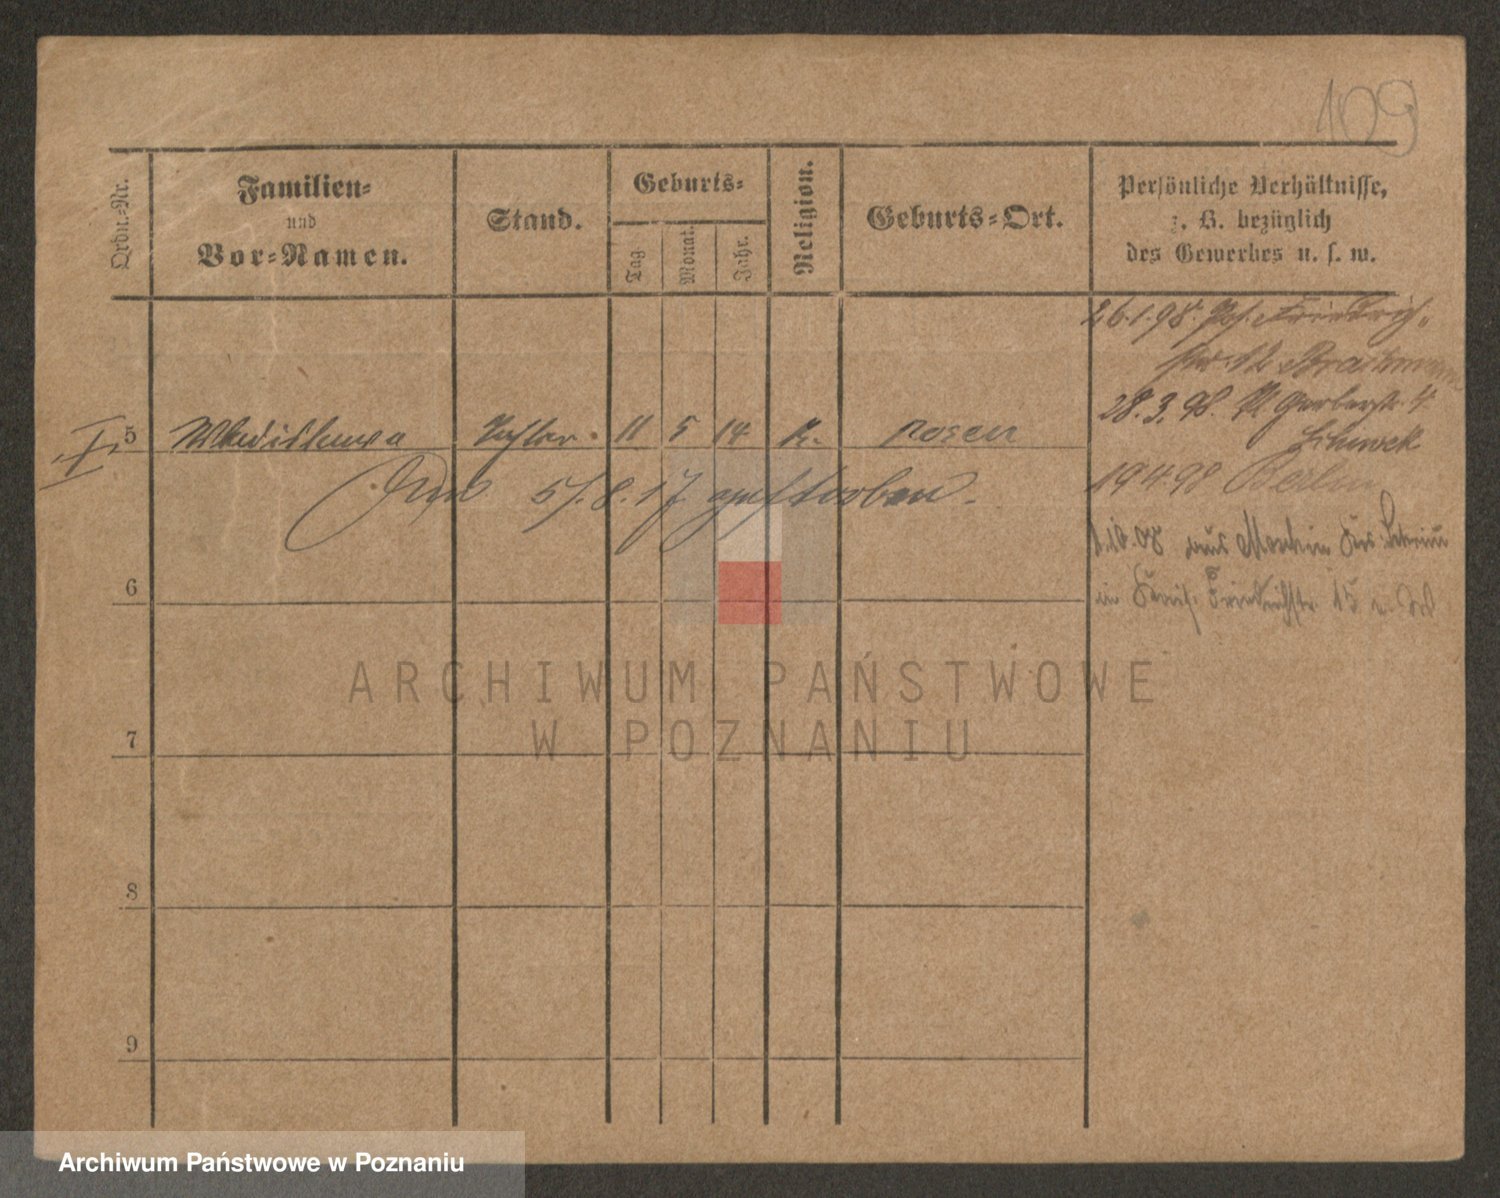 109
Ordn.-Nr.
Familien-
und
Vor-Namen.
Stand.
Geburts-
Tag
Monat.
Jahr.
Religion.
Geburts-Ort.
Persönliche Verhältnisse,
z. B. bezüglich
des Gewerbes u. s. w.
26.1.98. Friedrich-
12
28.3.98. Gerberstr. 4
5 Wladislawa Tochter 11 5 14 K. Posen
19 4 98 Berlin
5/.8.17 gestorben.
1.10.08 aus
in Friedrichstr. 15
6
7
8
9
ARCHIWUM PAŃSTWOWE
W POZNANIU
Archiwum Państwowe w Poznaniu